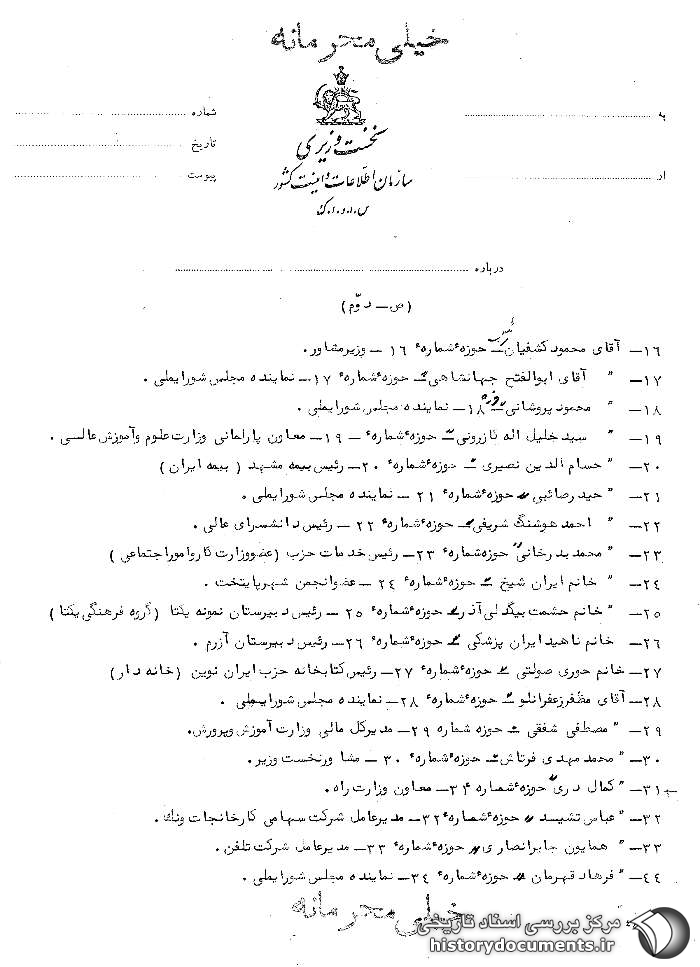 خیلی محرمانه
نخست وزیری
سازمان اطلاعات و امنیت کشور
س.ا.و.ا.ک
به
از
شماره
تاریخ
پیوست
درباره
(ص ـ دوّم)
۱۶ـ آقای محمود کشفیان ـ حوزه شماره ۱۶ ـ وزیر مشاور.
۱۷ـ " آقای ابوالفتح جهانشاهی ـ حوزه شماره ۱۷ ـ نماینده مجلس شورایملی.
۱۸ـ " محمود پروشانی ـ حوزه ۱۸ـ نماینده مجلس شورایملی.
۱۹ـ " سید خلیل اله نازرونی ـ حوزه شماره ـ ۱۹ـ معاون پارلمانی وزارت علوم و آموزش عالی.
۲۰ـ " حسام الدین نصیری ـ حوزه شماره ۲۰ـ رئیس بیمه مشهد (بیمه ایران)
۲۱ـ " حیدر صائبی " حوزه شماره ۲۱ ـ نماینده مجلس شورایملی.
۲۲ـ " احمد هوشنگ شریفی ـ حوزه شماره ۲۲ ـ رئیس دانشسرای عالی.
۲۳ـ " محمد بدرخانی " حوزه شماره ۲۳ـ رئیس خدمات حزب (عضو وزارت کار و امور اجتماعی)
۲۴ـ " خانم ایران شیخ ـ حوزه شماره ۲۴ ـ عضو انجمن شهر پایتخت.
۲۵ـ " خانم حشمت بیگدلی آذر ـ حوزه شماره ۲۵ ـ رئیس دبیرستان نمونه یکتا (گروه فرهنگی یکتا)
۲۶ـ خانم ناهید ایران پزشکی ـ حوزه شماره ۲۶ـ رئیس دبیرستان آزرم.
۲۷ـ خانم حوری صولتی ـ حوزه شماره ۲۷ـ رئیس کتابخانه حزب ایران نوین (خانه دار)
۲۸ـ آقای مظفر زعفرانلو ـ حوزه شماره ۲۸ـ نماینده مجلس شورایملی.
۲۹ـ " مصطفی شفقی ـ حوزه شماره ۲۹ـ مدیرکل مالی وزارت آموزش و پرورش.
۳۰ـ " محمد مهدی فرتاش ـ حوزه شماره ۳۰ ـ مشاور نخست وزیر.
۳۱ـ " کمال دری " حوزه شماره ۳۴ـ معاون وزارت راه.
۳۲ـ " عباس تشید " حوزه شماره ۳۲ـ مدیرعامل شرکت سهامی کارخانجات ونک.
۳۳ـ " همایون جابرانصاری " حوزه شماره ۳۳ـ مدیرعامل شرکت تلفن.
۴۴ـ " فرهاد قهرمان " حوزه شماره ۳۴ـ نماینده مجلس شورایملی.
خیلی محرمانه
مرکز بررسی اسناد تاریخی
historydocuments.ir